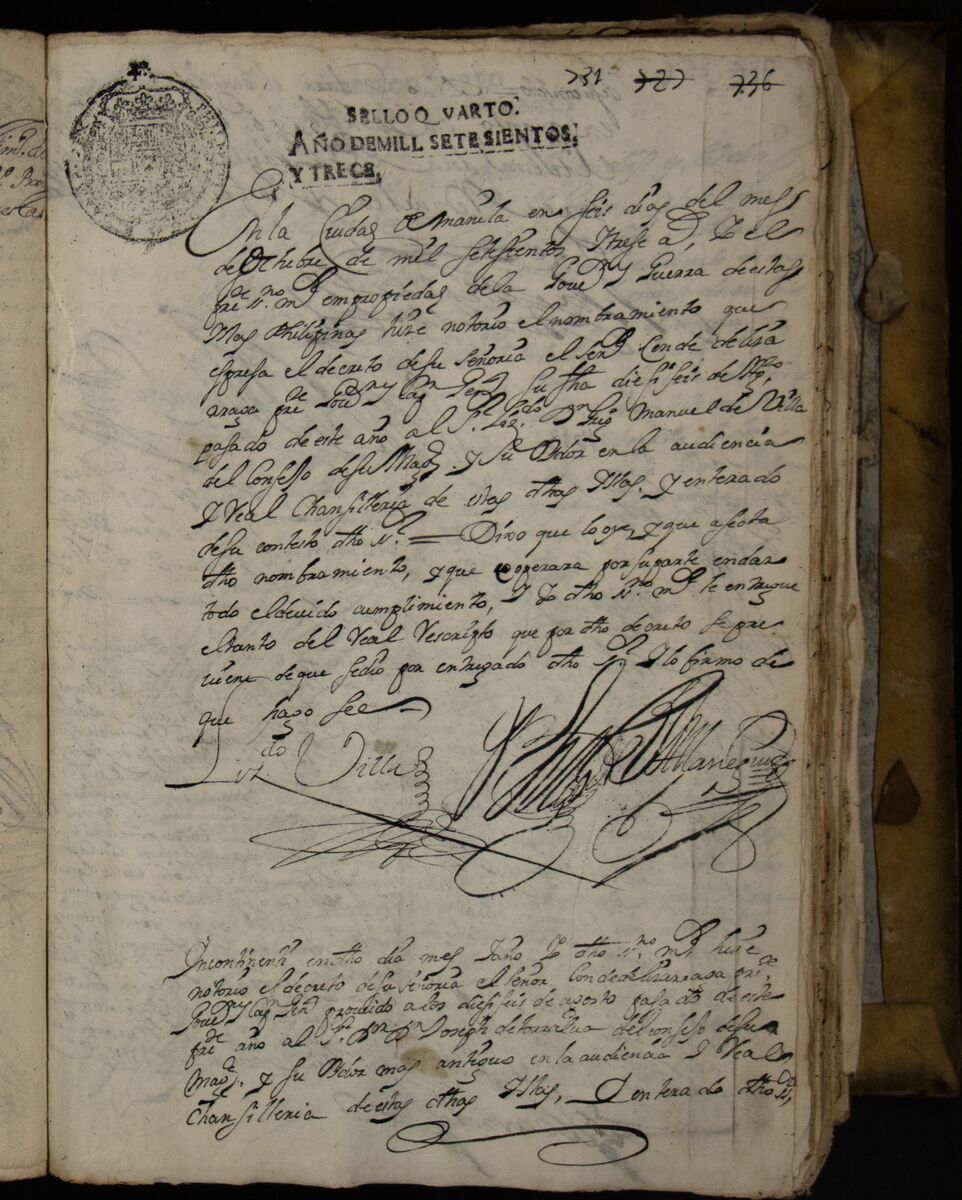 731 727 736
SELLO QVARTO.
AÑO DE MILL SETESIENTOS,
Y TRECE,
En la Ciudad de Manila en seis dias del mes
de Octubre de mil setesientos y trese ad, Yo el
press.no m.r en propiedad de la Gouer.n y Guerra de estas
Yslas Philipinas hise notorio el nombramiento que
espresa el decreto de su señoria el señor Conde de liza
rraga pre.te Gou.r y Cap.n Gen.l su fha dies y seis de
pasado de este año al S.r Liz.do D.n Greg.o Manuel de Villa
del Consejo de su Mag.d y su Oidor en la audiencia
y Real Chansilleria de estas dhas Yslas. y enterado
de su contesto dho s.r = Dixo que lo oye, y que asepta
dho nombramiento, y que cooperara por su parte en dar
todo el devido cumplimiento, Y Yo dho m.r le entregue
el tanto del Real Rescripto que por dho decreto se pre
viene de que se dio por entregado dho s.r Y lo firmo de
que hago fee
Liz.do Villa
Yncontinenti en dho dia mes y año Yo dho m.r hise
notorio el decreto de su señoria el señor Conde de lizarraga pre.te
Gou.r y Cap.n Gen.l proueido a los dies y seis de agosto pasado de este
pre.te año al S.r D.r D.n Joseph de torralua del consejo de su
Mag.d y su Oidor mas antiguo en la audiencia y Real
Chansilleria de estas dhas Yslas, Y enterado dho s.r,